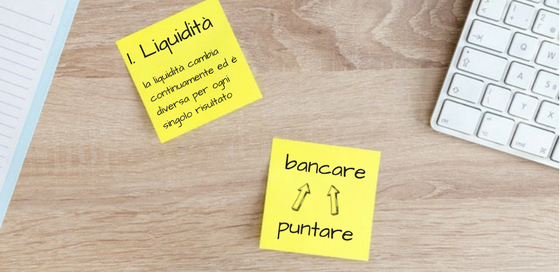 1. Liquidità
la liquidità cambia
continuamente ed è
diversa per ogni
singolo risultato
bancare
puntare